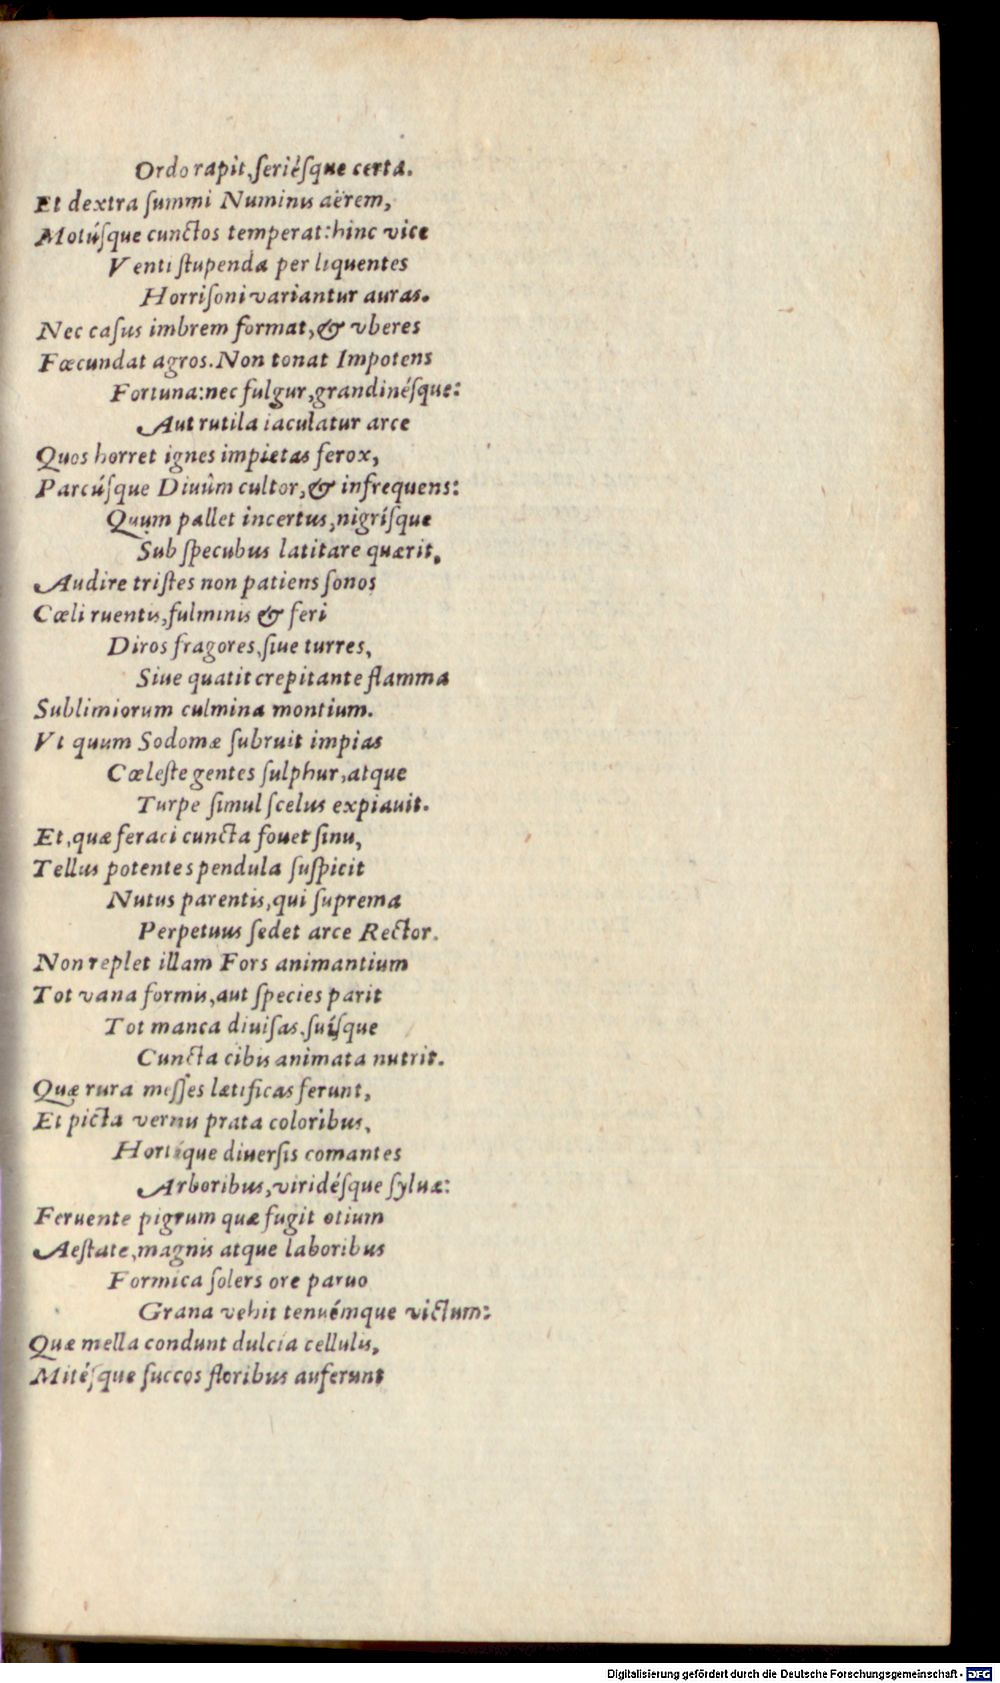 Ordo rapit, ſeriéſque certa.
Et dextra ſummi Numinis aërem,
Motúſque cunctos temperat: hinc vice
Venti ſtupenda per liquentes
Horriſoni variantur auras.
Nec caſus imbrem format, & vberes
Fœcundat agros. Non tonat Impotens
Fortuna: nec fulgur, grandinéſque:
Aut rutila iaculatur arce
Quos horret ignes impietas ferox,
Parcúſque Diuûm cultor, & infrequens:
Quum pallet incertus, nigríſque
Sub ſpecubus latitare quærit,
Audire triſtes non patiens ſonos
Cœli ruentis, fulminis & feri
Diros fragores, ſiue turres,
Siue quatit crepitante flamma
Sublimiorum culmina montium.
Vt quum Sodomæ ſubruit impias
Cœleſte gentes ſulphur, atque
Turpe ſimul ſcelus expiauit.
Et, quæ feraci cuncta fouet ſinu,
Tellus potentes pendula ſuſpicit
Nutus parentis, qui ſuprema
Perpetuus ſedet arce Rector.
Non replet illam Fors animantium
Tot vana formis, aut ſpecies parit
Tot manca diuiſas, ſuíſque
Cuncta cibis animata nutrit.
Quæ rura meſſes lætificas ferunt,
Et picta vernis prata coloribus,
Hortíque diuerſis comantes
Arboribus, viridéſque ſyluæ:
Feruente pigrum quæ fugit otium
Aeſtate, magnis atque laboribus
Formica ſolers ore paruo
Grana vehit tenuémque victum:
Quæ mella condunt dulcia cellulis,
Mitéſque ſuccos floribus auferunt
Digitalisierung gefördert durch die Deutsche Forschungsgemeinschaft - DFG